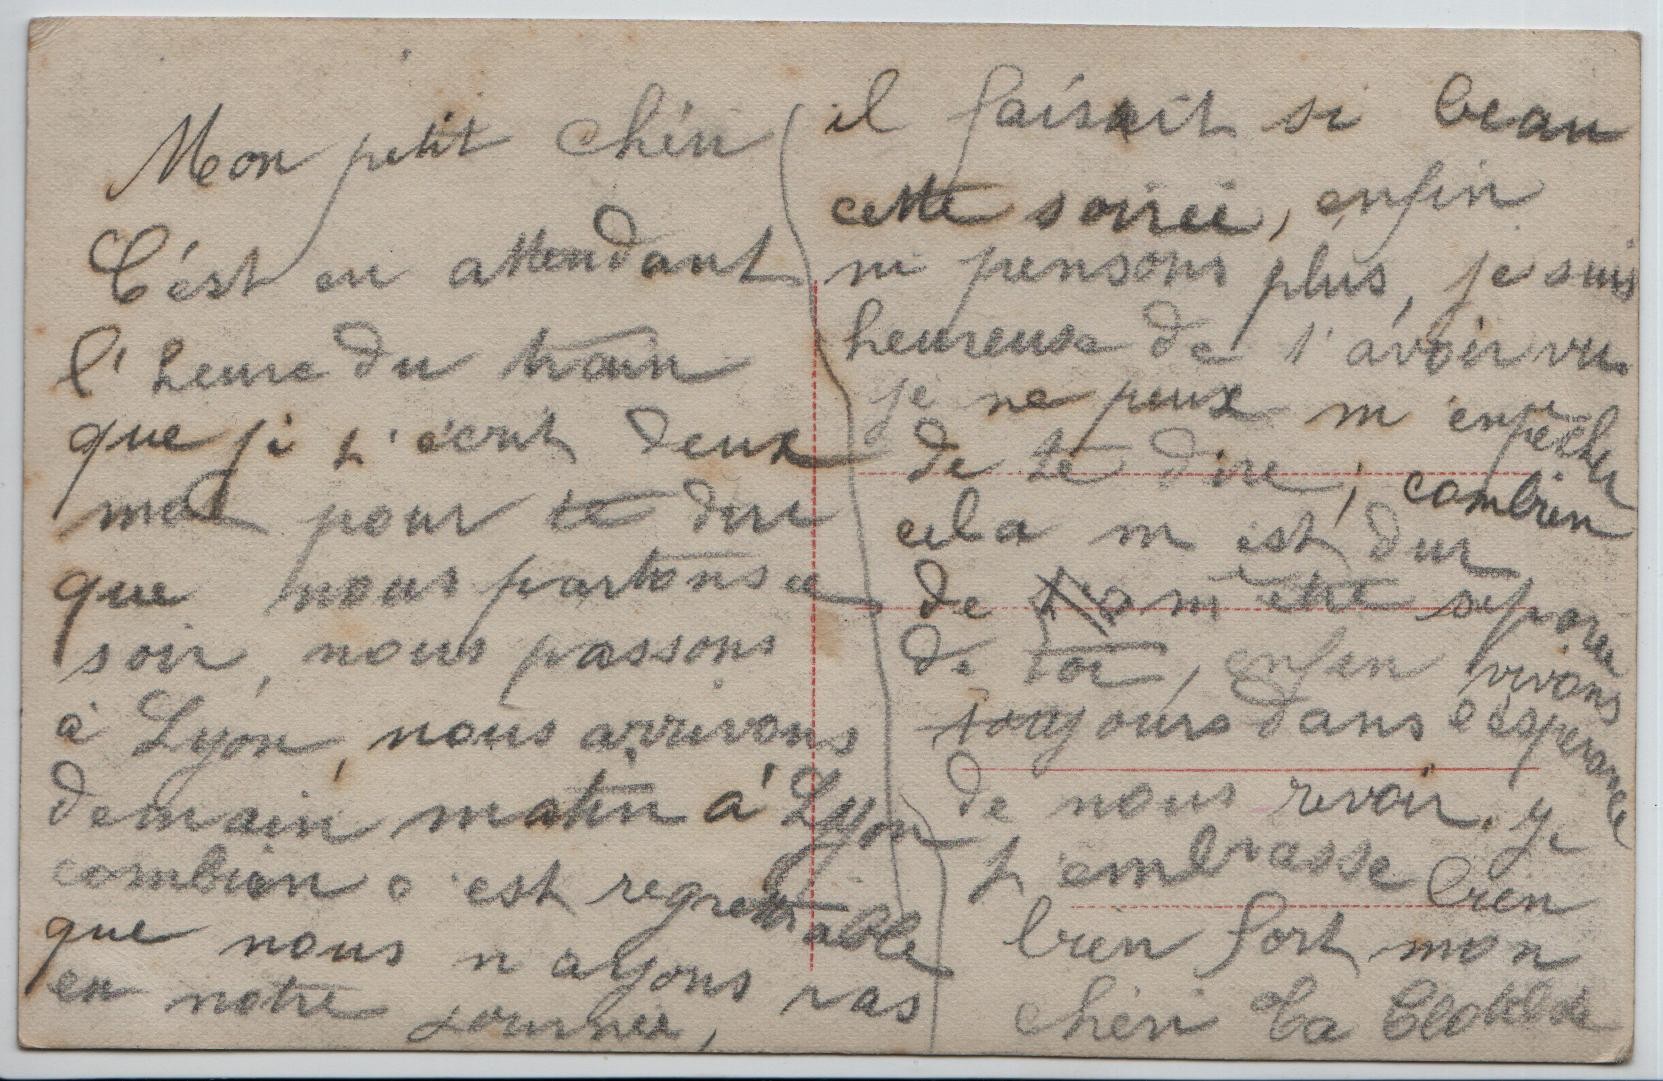 Mon petit chéri
C'est en attendant
l'heure du train
que je t'écrit deux
mot pour te dire
que nous partons ce
soir, nous passons
à Lyon, nous arrivons
demain matin à Lyon
combien c'est regrettable
que nous n'ayons pas
eu notre journée,
il faisait si beau
cette soirée, enfin
ni pensons plus, je suis
heureuse de t'avoir vu
je ne peux m'enpêcher
de te dire, combien
cela m'est dur
de m'être séparée
de toi, enfin vivons
toujours dans l'ésperance
de nous revoir. Je
t'embrasse bien
bien fort mon
chéri Ta Clotilde